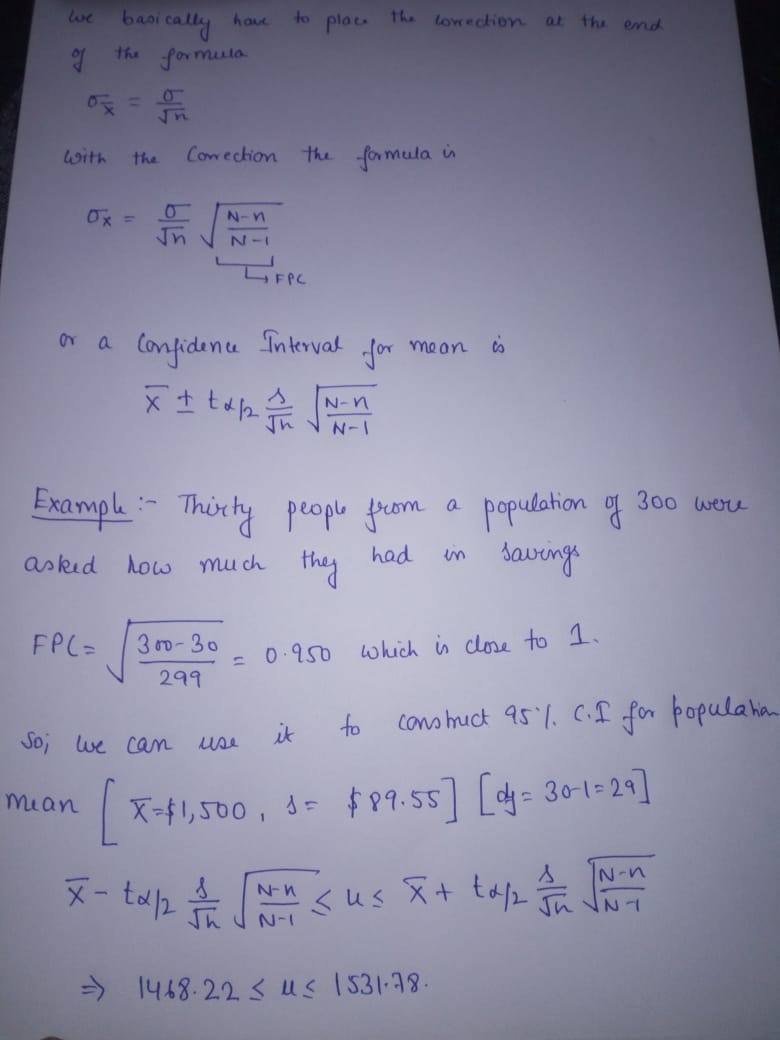 we basically have to place the correction at the end
of the formula
σx̄ = σ/√n
With the Correction the formula is
σx = σ/√n √(N-n/N-1)
↳ FPC
or a Confidence Interval for mean is
x̄ ± tα/2 s/√n √(N-n/N-1)
Example :- Thirty people from a population of 300 were
asked how much they had in savings
FPC = √(300-30/299) = 0.950 which is close to 1.
So; we can use it to construct 95%. C.I for population
mean [x̄=$1,500, s= $89.55] [df= 30-1=29]
x̄ - tα/2 s/√n √(N-n/N-1) ≤ u ≤ x̄ + tα/2 s/√n √(N-n/N-1)
⇒ 1468.22 ≤ u ≤ 1531.78.